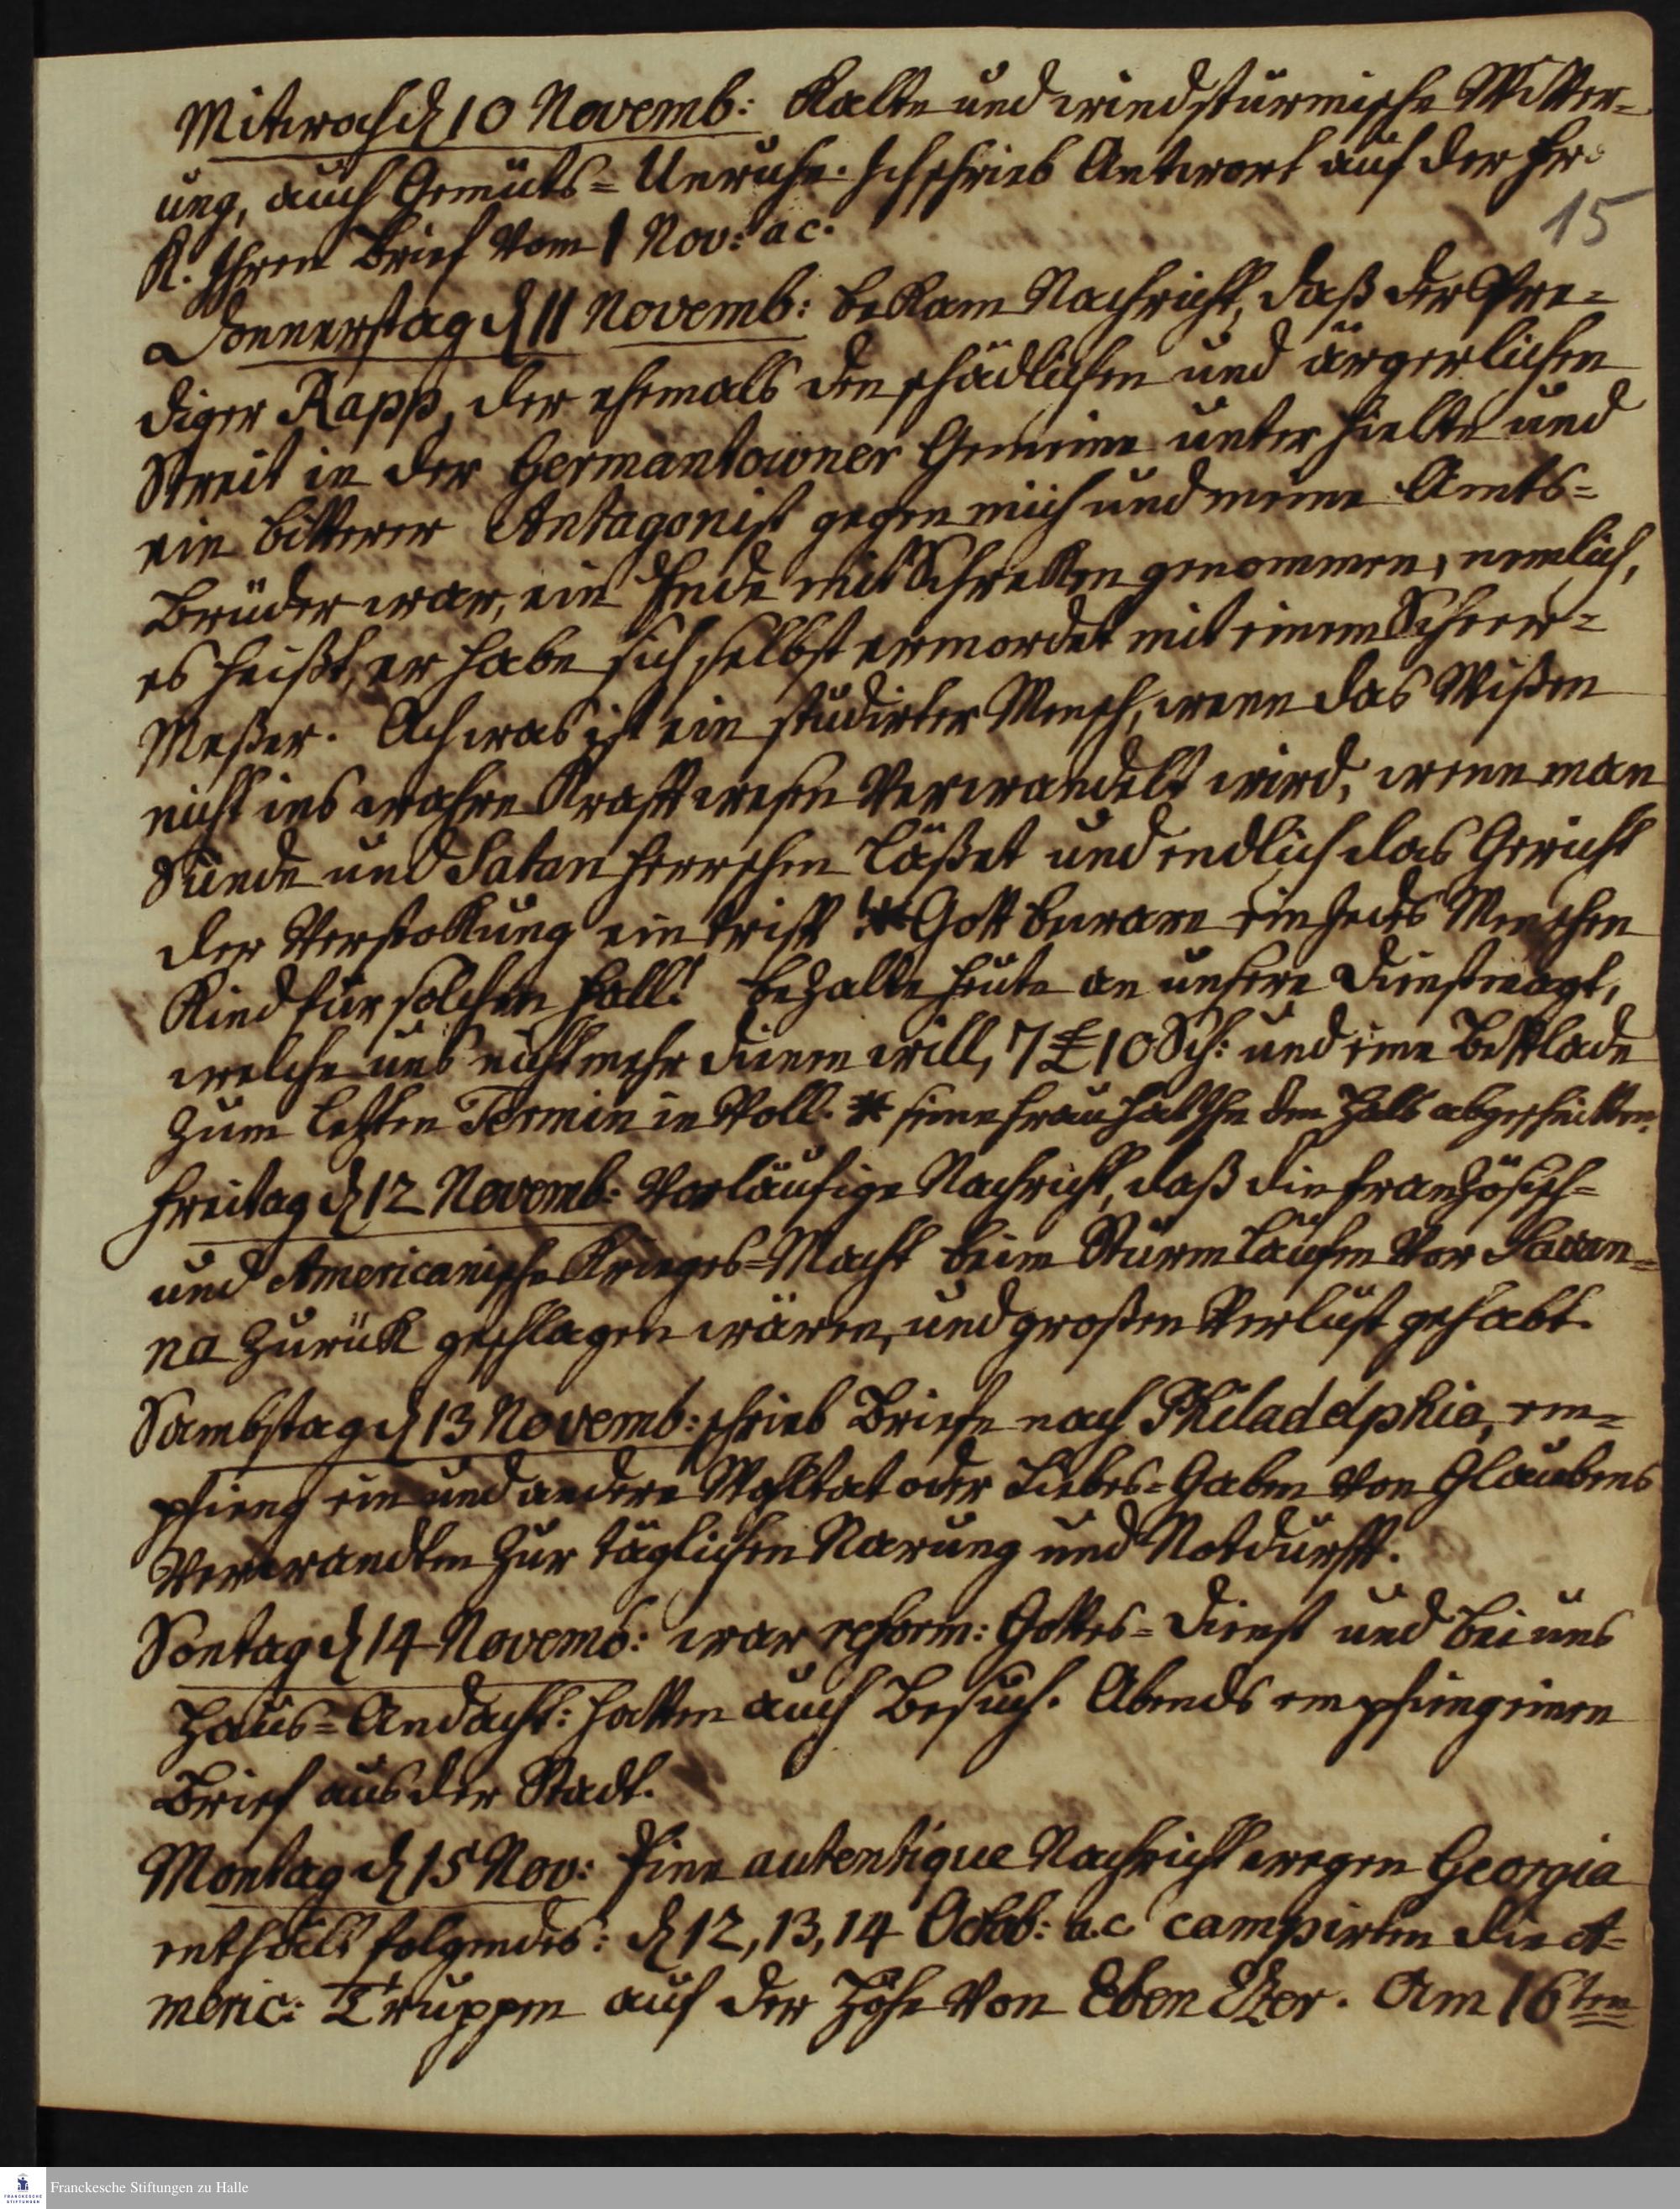 Mitwoch d 10 Novemb: Kalte und windstürmische Witter=
ung, auch Gemüts=Unruhe. Ich schrieb Antwort auf der Fr:
15
K. Ihren Brief vom 1 Nov: ac.
Donnerstag d 11 Novemb: bekam Nachricht, daß der Pre=
diger Rapp, der ehemals den schädlichen und ärgerlichen
Streit in der Germantowner Gemeine unter hielte und
ein bitterer Antagonist gegen mich und meine Amts=
Brüder war, ein Ende mit Schrekken genommen, nemlich,
es heißt, er habe sich selbst ermordet mit einem Scheer=
Meßer. Ach was ist ein studirter Mensch, wenn das Wißen
nicht ins wahre Kraftwesen verwandelt wird, wenn man
Sünde und Satan herrschen läßet und endlich das Gericht
der Verstokkung eintrift! * Gott beware ein jedes Menschen
Kind für solchen Fall! bezalte heute an unsere Dienstmagt,
welche uns nicht mehr dienen will, 7 £ 10 Sch: und eine Bettlade
zum lezten Termin in Voll. * seine Frau hat Ihn den Hals abgeschnitten.
Freitag d 12 Novemb: Vorläufige Nachricht, daß die französisch=
und Americanische Krieges=Macht beim Sturmlaufen vor Savan=
na zurük geschlagen wären, und großen Verlust gehabt.
Sambstag d 13 Novemb: schrieb Briefe nach Philadelphia, em=
pfieng ein und andere Wohltat oder Liebes=Gaben von Glaubens
Verwandten zur täglichen Narung und Notdurft.
Sontag d 14 Novemb: war reform: Gottes=Dienst und bei uns
Haus=Andacht: hatten auch Besuch. Abends empfieng einen
Brief aus der Stadt.
Montag d 15 Nov: Eine autentique Nachricht wegen Georgia
enthält folgendes: d 12, 13, 14 Octob: a.c campirten die A=
meric: Truppen auf der Höhe von Eben Ezer. Am 16ten
Franckesche Stiftungen zu Halle